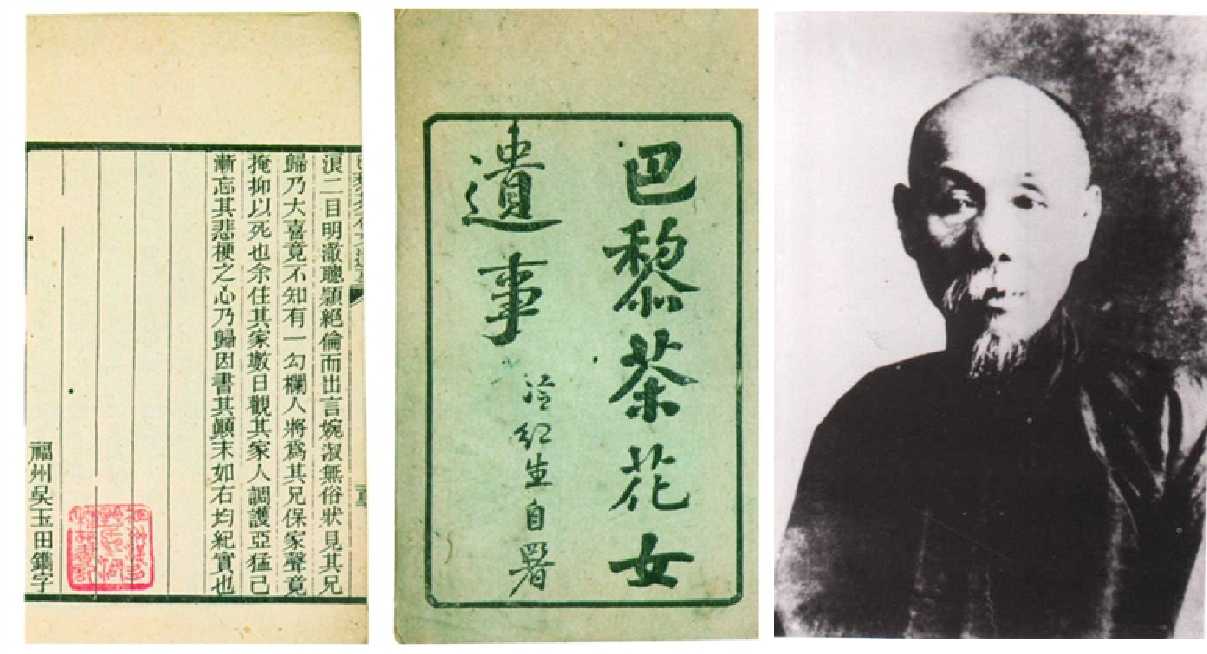 浪二目明澈聰頴絕倫而出言婉淑無俗狀見其兄
歸乃大喜竟不知有一勾欄人將爲其兄保家聲竟
掩抑以死也余住其家數日觀其家人調護亞猛已
漸忘其悲梗之心乃歸因書其顚末如右均紀實也
福州吳玉田鐫字
巴黎茶花女
遺事
冷紅生自署